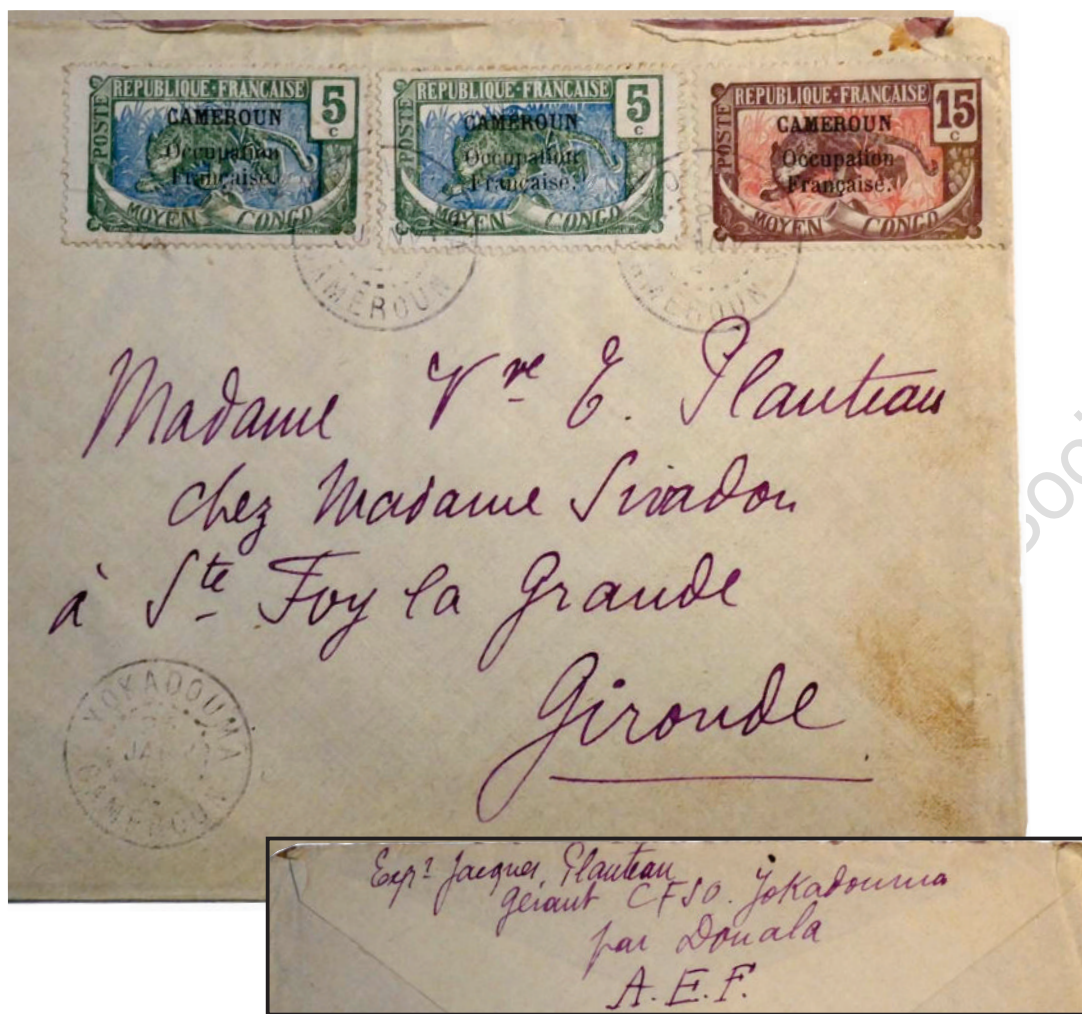 REPUBLIQUE·FRANÇAISE
POSTE
5
c
CAMEROUN
Occupation
Française.
MOYEN CONGO
REPUBLIQUE·FRANÇAISE
POSTE
5
c
CAMEROUN
Occupation
Française.
MOYEN CONGO
REPUBLIQUE·FRANÇAISE
POSTE
15
c
CAMEROUN
Occupation
Française.
MOYEN CONGO
CAMEROUN
CAMEROUN
Madame Vve E. Planteau
chez Madame Sivadon
à Ste Foy la Grande
Gironde
YOKADOUMA
JAN
CAMEROUN
Expr Jacques Planteau
gérant CFSO. Yokadouma
par Douala
A.E.F.